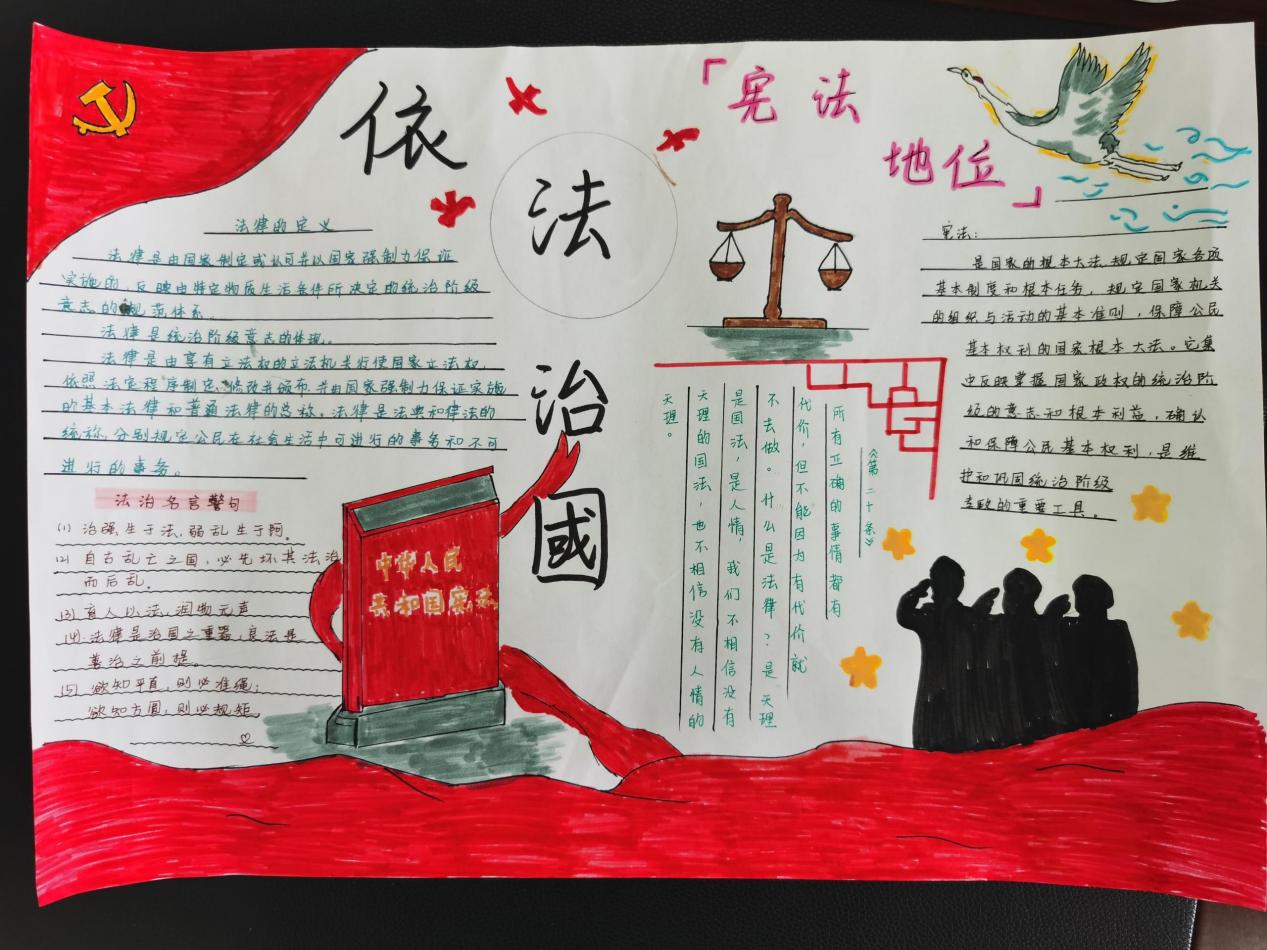 依
法
治
國
「宪法
地位」
法律的定义
法律是由国家制定或认可并以国家强制力保证
实施的，反映由特定物质生活条件所决定的统治阶级
意志的规范体系。
法律是统治阶级意志的体现。
法律是由享有立法权的立法机关行使国家立法权，
依照法定程序制定、修改并颁布，并由国家强制力保证实施
的基本法律和普通法律的总称。法律是法典和律法的
统称，分别规定公民在社会生活中可进行的事务和不可
进行的事务。
法治名言警句
(1) 治强生于法，弱乱生于阿。
(2) 自古乱亡之国，必先坏其法治
而后乱。
(3) 育人以法，润物无声
(4) 法律是治国之重器，良法是
善治之前提。
(5) 欲知平直，则必准绳；
欲知方圆，则必规矩
中华人民
共和国宪法
《第二十条》
所有正确的事情都有
代价，但不能因为有代价就
不去做。什么是法律？是天理
是国法，是人情，我们不相信没有
天理的国法，也不相信没有人情的
天理。
宪法：
是国家的根本大法，规定国家各项
基本制度和根本任务，规定国家机关
的组织与活动的基本准则，保障公民
基本权利的国家根本大法。它集
中反映掌握国家政权的统治阶
级的意志和根本利益，确认
和保障公民基本权利，是维
护和巩固统治阶级
专政的重要工具。